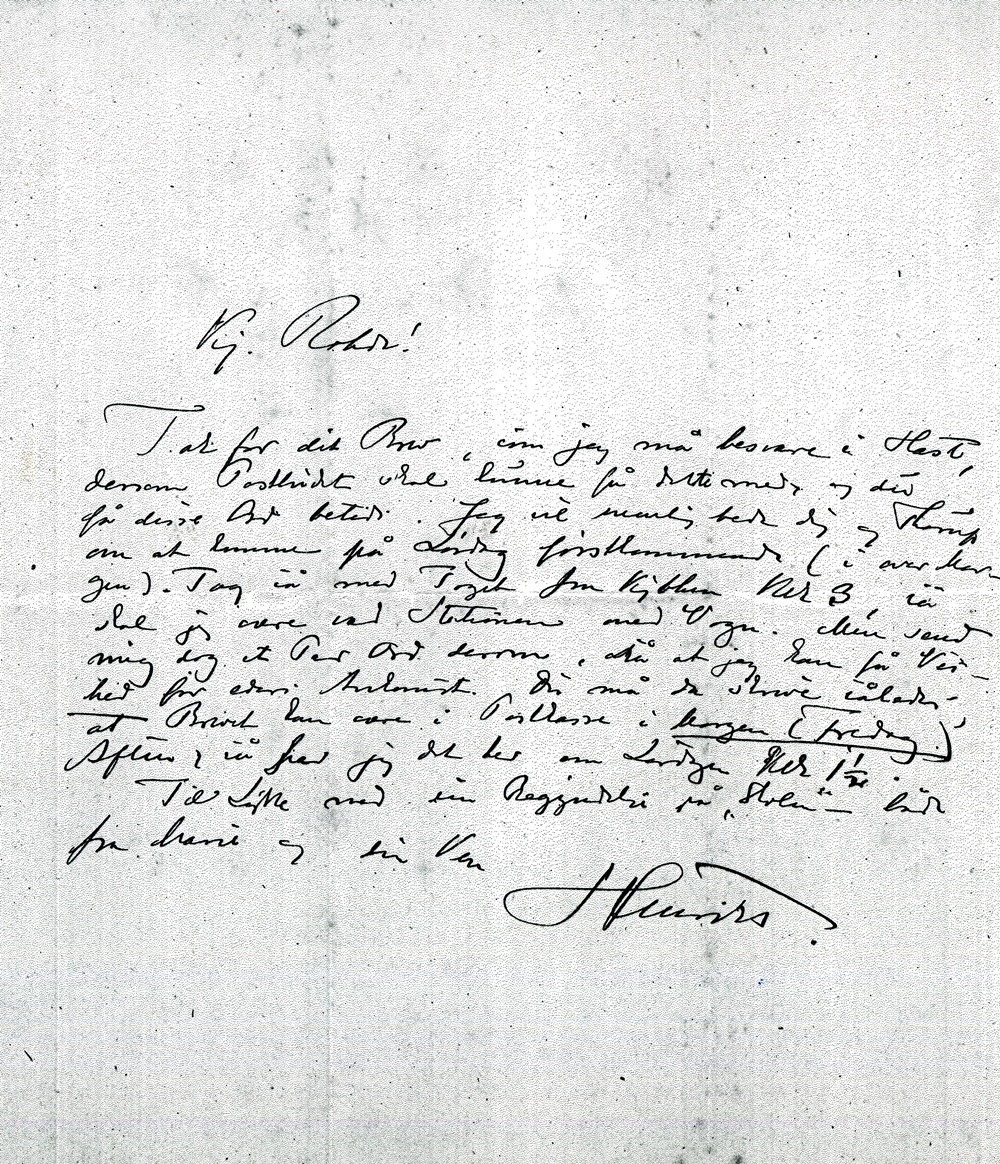 Kj. Rohde!
Tak for dit Brev, som jeg må besvare i Hast,
dersom Postbudet skal kunne få dette med, og du
få disse Ord betids. Jeg vil nemlig bede dig og Thorup
om at komme på Lørdag førstkommende (i over Mor-
gen). Tag så med Toget fra Kjbhvn Kl. 3, så
skal jeg være ved Stationen med Vogn. Men send
mig dog et Par Ord derom, så at jeg kan få Vis-
hed for eders Ankomst. Du må da skrive således,
at Brevet kan være i Postkasse i Morgen (Fredag)
Aften; så har jeg det her om Lørdagen Kl. 1½
Til Lykke med din Begyndelse på „Skolen“ — både
fra Marie og din Ven